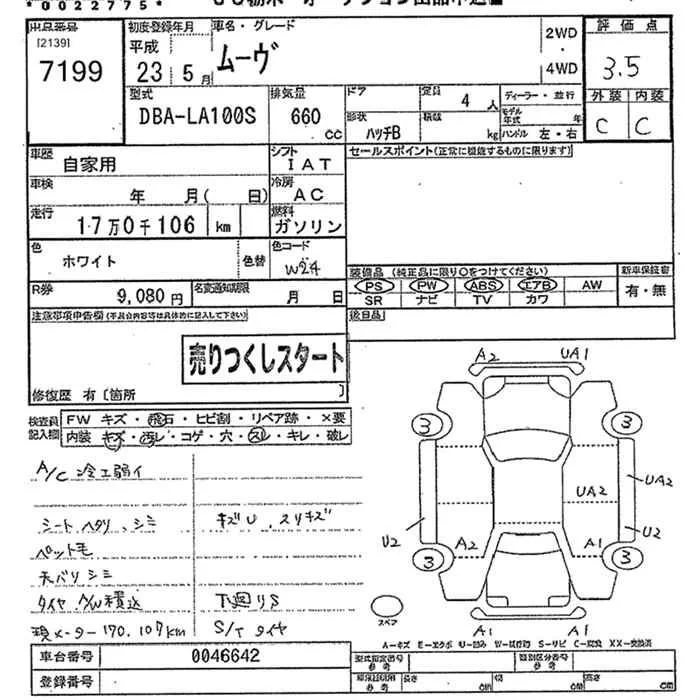 *0022775*
出品番号 初度登録年月 車名・グレード 2WD・4WD 評価点
[2139] 7199 平成23年5月 ムーヴ 3.5
型式 排気量 ドア 定員 4人 ディーラー・並行 外装 内装
DBA-LA100S 660cc 形状 ハッチB 積載 kg モデル年式 年 ハンドル 左・右 C C
車歴 自家用 シフト IAT セールスポイント(正常に機能するものに限ります)
車検 年 月( 日) 冷房 AC
走行 17万0千106 km 燃料 ガソリン
色 ホワイト 色替 色コード W24
装備品 (純正品に限り○をつけてください) 新車保証書
R券 9,080円 名変通知期限 月 日 PS PW ABS エアB AW 有・無
SR ナビ TV カワ
注意事項申告欄(不具合内容等は具体的に記入して下さい) 後日品
売りつくしスタート
修復歴 有〔箇所 〕
検査員記入欄 FW キズ・飛石・ヒビ割・リペア跡・×要
内装 キズ・汚レ・コゲ・穴・スレ・キレ・破レ
A/C 冷工弱イ
シート ヘタリ、シミ キズU、スリキズ
ペット毛
天バリシミ
タイヤ A/W積込 下廻りS
現メーター170,107km S/T タイヤ
A2 UA1
3 3
UA2 UA2
U2 U2
A2 A1
3 3
スペア
A1 A1
A=キズ E=エクボ U=凹み W=波打跡 S=サビ C=腐蝕 XX=交換済
車台番号 0046642 型式指定番号 参考 類別区分番号 参考
登録番号 長さ cm 幅 cm 高さ cm